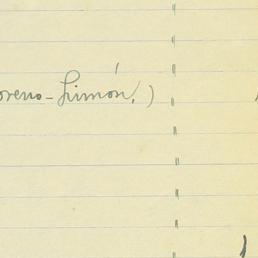 oreno-Limón,)